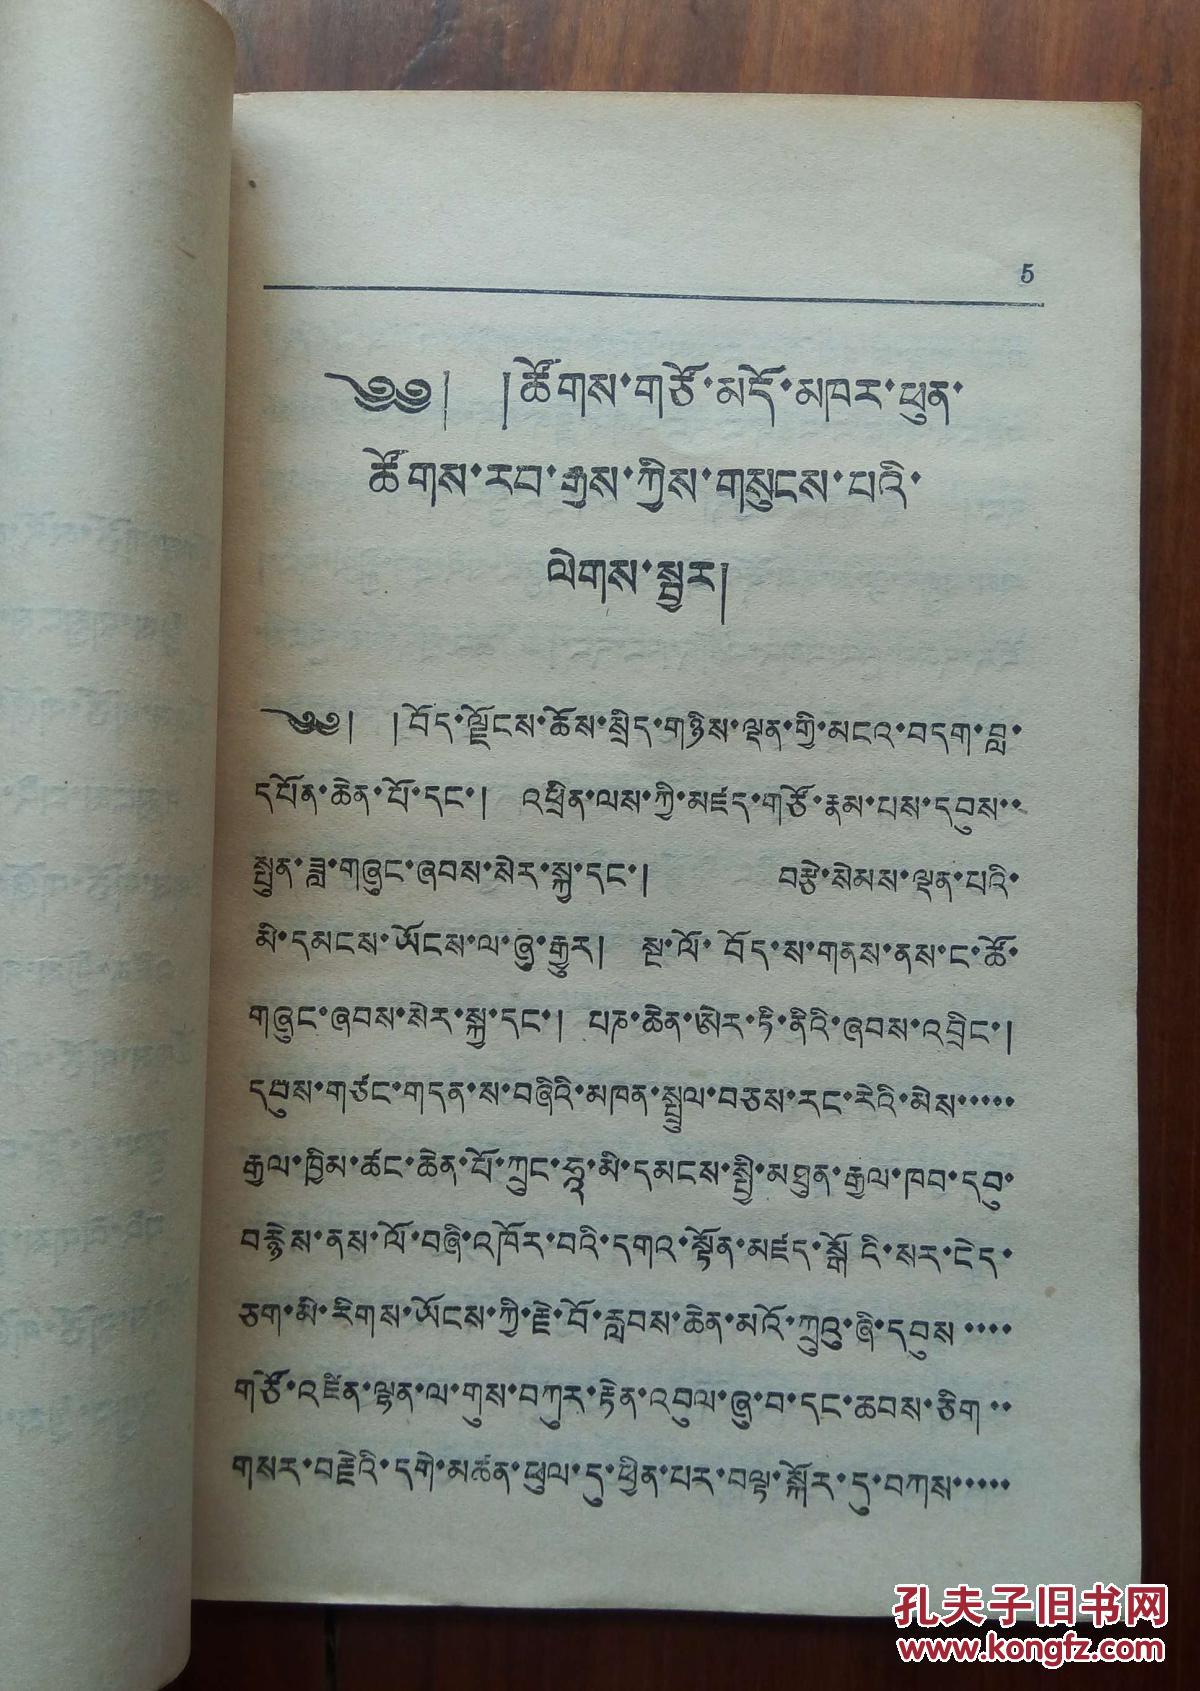 5
༄༅། །ཚོགས་གཙོ་མདོ་མཁར་ཕུན་
ཚོགས་རབ་རྒྱས་ཀྱིས་གསུངས་པའི་
ལེགས་སྦྱར།
༄༅། །བོད་ལྗོངས་ཆོས་སྲིད་གཉིས་ལྡན་གྱི་མངའ་བདག་བླ་
དཔོན་ཆེན་པོ་དང་། འཕྲིན་ལས་ཀྱི་མཛད་གཙོ་རྣམ་པས་དབུས··
སྤུན་ཟླ་གཞུང་ཞབས་སེར་སྐྱ་དང་། བརྩེ་སེམས་ལྡན་པའི་
མི་དམངས་ཡོངས་ལ་ཞུ་རྒྱུར། སྔ་ལོ་ བོད་ས་གནས་ནས་ང་ཚོ་
གཞུང་ཞབས་སེར་སྐྱ་དང་། པཎ་ཆེན་ཨེར་ཏི་ནིའི་ཞབས་འབྲིང་།
དབུས་གཙང་གདན་ས་བཞིའི་མཁན་སྤྲུལ་བཅས་རང་རེའི་མེས·····
རྒྱལ་ཁྱིམ་ཚང་ཆེན་པོ་ཀྲུང་ཧྭ་མི་དམངས་སྤྱི་མཐུན་རྒྱལ་ཁབ་དབུ་
བརྙེས་ནས་ལོ་བཞི་འཁོར་བའི་དགའ་སྟོན་མཛད་སྒོ་ངེ་སར་ངེད་
ཅག་མི་རིགས་ཡོངས་ཀྱི་རྗེ་བོ་རླབས་ཆེན་མའོ་ཀྲུའུ་ཞི་དབུས ····
གཙོ་འཛིན་ལྷན་ལ་གུས་བཀུར་རྟེན་འབུལ་ཞུ་བ་དང་ཆབས་ཅིག ··
གསར་བརྗེའི་དགེ་མཚན་ཕུལ་དུ་ཕྱིན་པར་བལྟ་སྐོར་དུ་བཀས·····
孔夫子旧书网
www.kongfz.com